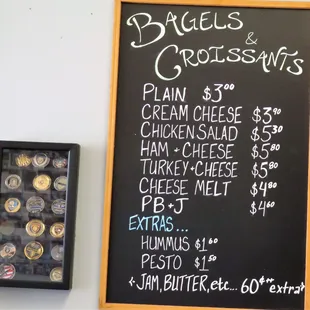 BAGELS
&
CROISSANTS
PLAIN $3.00
CREAM CHEESE $3.90
CHICKEN SALAD $5.30
HAM + CHEESE $5.80
TURKEY + CHEESE $5.80
CHEESE MELT $4.80
PB + J $4.60
EXTRAS...
HUMMUS $1.60
PESTO $1.50
+ JAM, BUTTER, etc... 60¢ extra